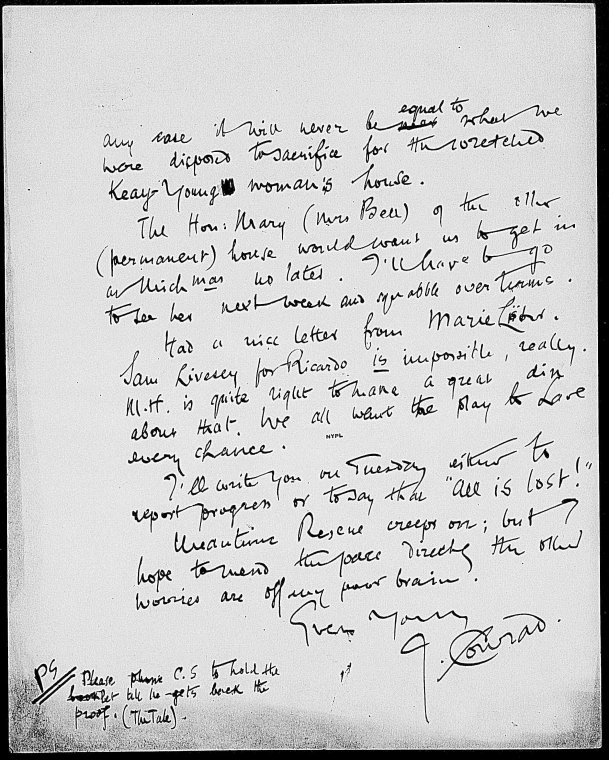 equal to
any case it will never be never what we
were disposed to sacrifice for the wretched
Keay-Young woman's house.
The Hon: Mary (Mrs Bell) of the other
(permanent) house would want us to get in
at Michmas no later. I'll have to go
to see her next week and squabble over terms.
Had a nice letter from Marie Löhr.
Sam Livesey for Ricardo is impossible, really.
M.H. is quite right to make a great din
about that. We all want the play to have
every chance.
NYPL
I'll write you on Tuesday either to
report progress or to say that "All is lost!"
Meantime Rescue creeps on; but I
hope to mend the pace directly the other
worries are off my poor brain.
Ever Yours
J. Conrad.
PS Please phone C.S to hold the
booklet till he gets back the
proof. (The Tale).